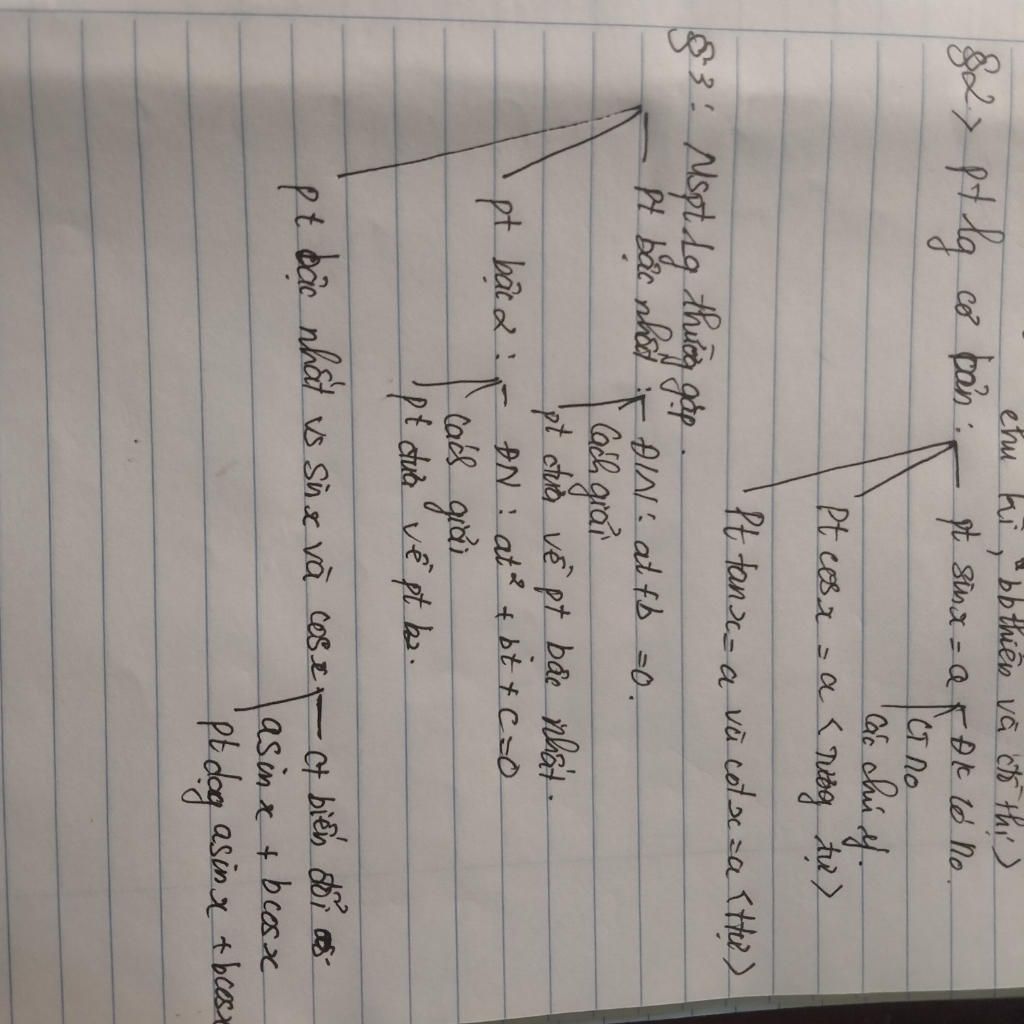 chu kì, bbthiên và đồ thị)
§2> pt lg cơ bản: pt sinx = a ĐK có no.
CT no
các chú ý.
Pt cosx = a <Tương tự>
Pt tanx = a và cotx = a <ttự>
§3: Mspt lg thường gặp.
Pt bậc nhất: ĐN: at + b = 0.
Cách giải
pt đưa về pt bậc nhất.
pt bậc 2: ĐN: at² + bt + c = 0
Cách giải
pt đưa về pt b2.
pt bậc nhất vs sinx và cosx. ct biến đổi
asinx + bcosx
pt dạng asinx + bcosx